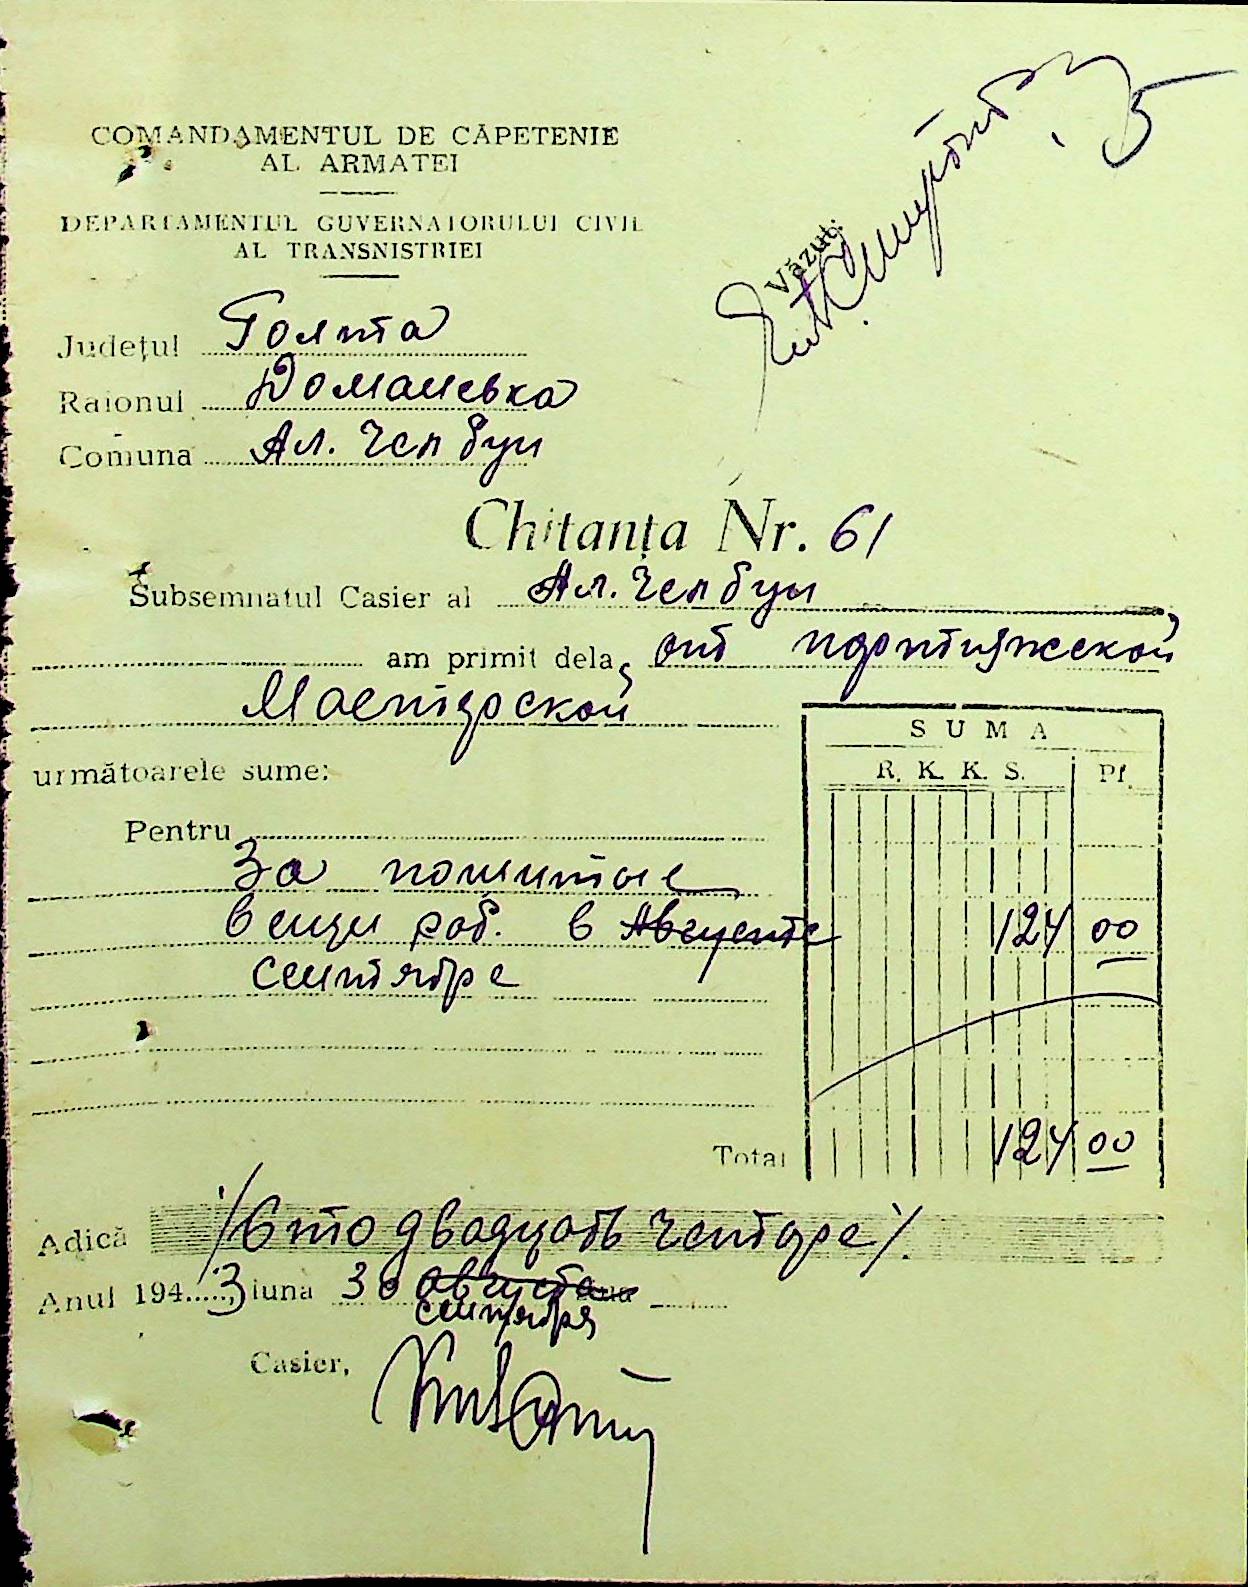 COMANDAMENTUL DE CĂPETENIE
AL ARMATEI
DEPARTAMENTUL GUVERNATORULUI CIVIL
AL TRANSNISTRIEI
5
Văzut:
Județul Голта
Raionul Доманевка
Comuna Ал. Чепбуи
Chitanța Nr. 61
Subsemnatul Casier al Ал. Чепбуи
am primit dela, от портняжской
Мастерской
următoarele sume:
SUMA
R. K. K. S. Pf.
Pentru
За пошитые
вещи раб. в Августе 124 00
сентябре
Total 124 00
Adică /Сто двадцать четыре/.
Anul 1943 luna 30 августа ziua
сентября
Casier,